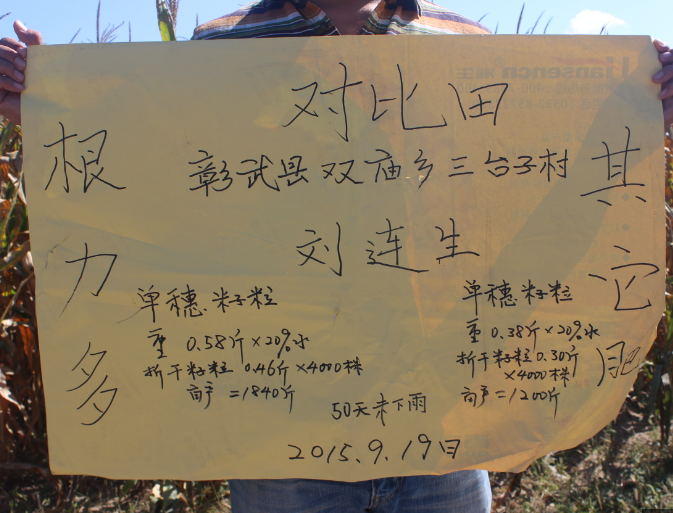 对比田
彰武县双庙乡三台子村
刘连生
根力多
单穗籽粒
重0.58斤×20%水
折干籽粒0.46斤×4000株
亩产=1840斤
其它肥
单穗籽粒
重0.38斤×20%水
折干籽粒0.30斤
×4000株
亩产=1200斤
50天未下雨
2015.9.19日